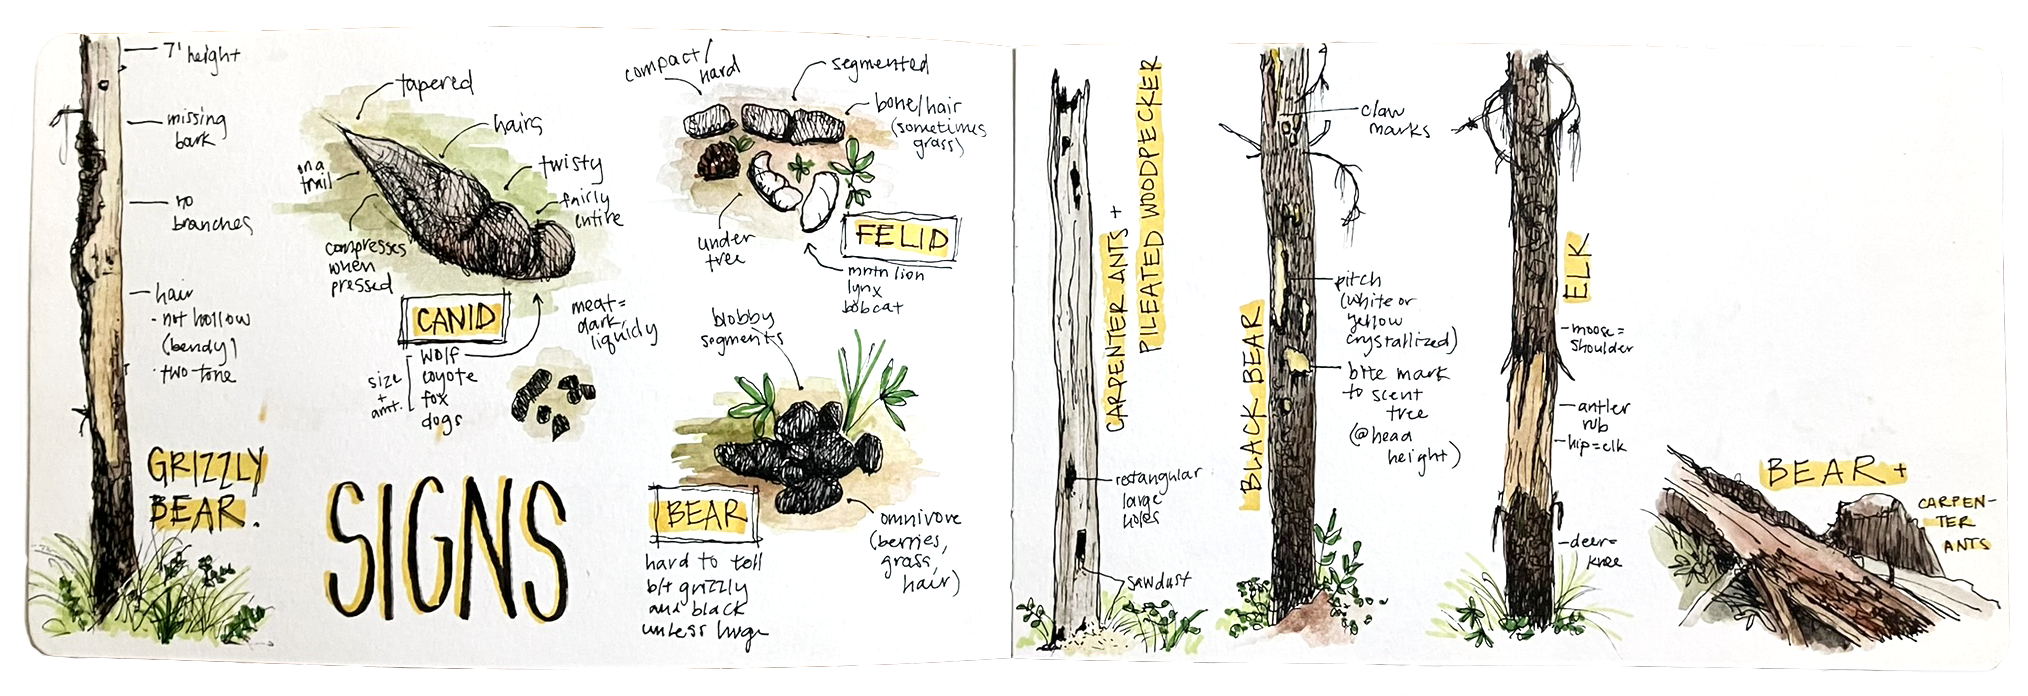 7' height
missing
bark
no
branches
hair
- not hollow
(bendy)
- two tone
GRIZZLY
BEAR.
tapered
hairs
twisty
fairly
entire
on a
trail
compresses
when
pressed
CANID
wolf
coyote
fox
dogs
size
+
amt.
meat=
dark,
liquidy
SIGNS
compact/
hard
segmented
bone/hair
(sometimes
grass)
under
tree
FELID
mntn lion
lynx
bobcat
blobby
segments
BEAR
omnivore
(berries,
grass,
hair)
hard to tell
b/t grizzly
and black
unless huge
CARPENTER ANTS +
PILEATED WOODPECKER
restangular
large
holes
sawdust
BLACK BEAR
claw
marks
pitch
(white or
yellow
crystallized)
bite mark
to scent
tree
(@ head
height)
ELK
-moose=
shoulder
antler
rub
-hip=elk
-deer=
knee
BEAR +
CARPEN-
TER
ANTS